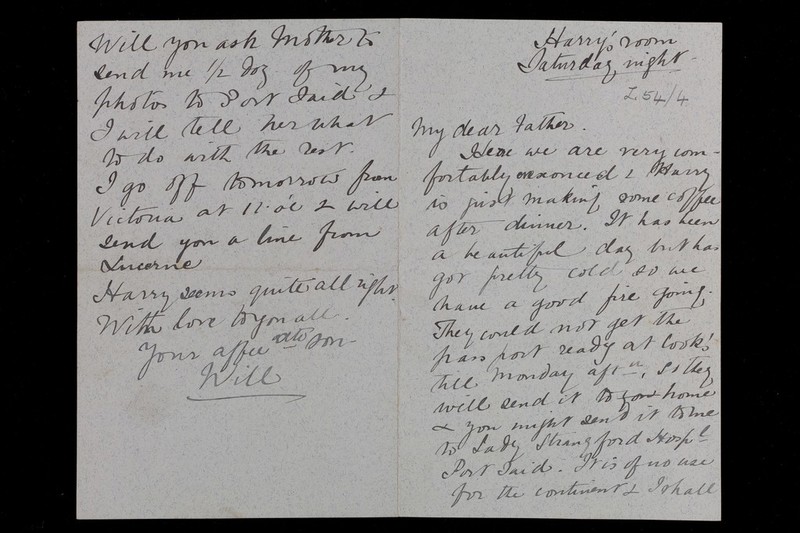 Harry's room
Saturday night -
Z 54/4
My dear Father.
Here we are very com-
fortably ensconced & Harry
is just making some coffee
after dinner. It has been
a beautiful day but has
got pretty cold so we
have a good fire going.
They could not get the
passport ready at Cook's
till Monday aftn, so they
will send it to your home
& you might send it to me
to Lady Strangford Hospl
Port Said. It is of no use
for the continent & I shall
Will you ask Mother to
send me 1/2 doz of my
photos to Port Said &
I will tell her what
to do with the rest.
I go off tomorrow from
Victoria at 11. o'c & will
send you a line from
Lucerne
Harry seems quite all right.
With love to you all.
Your affecate son -
Will